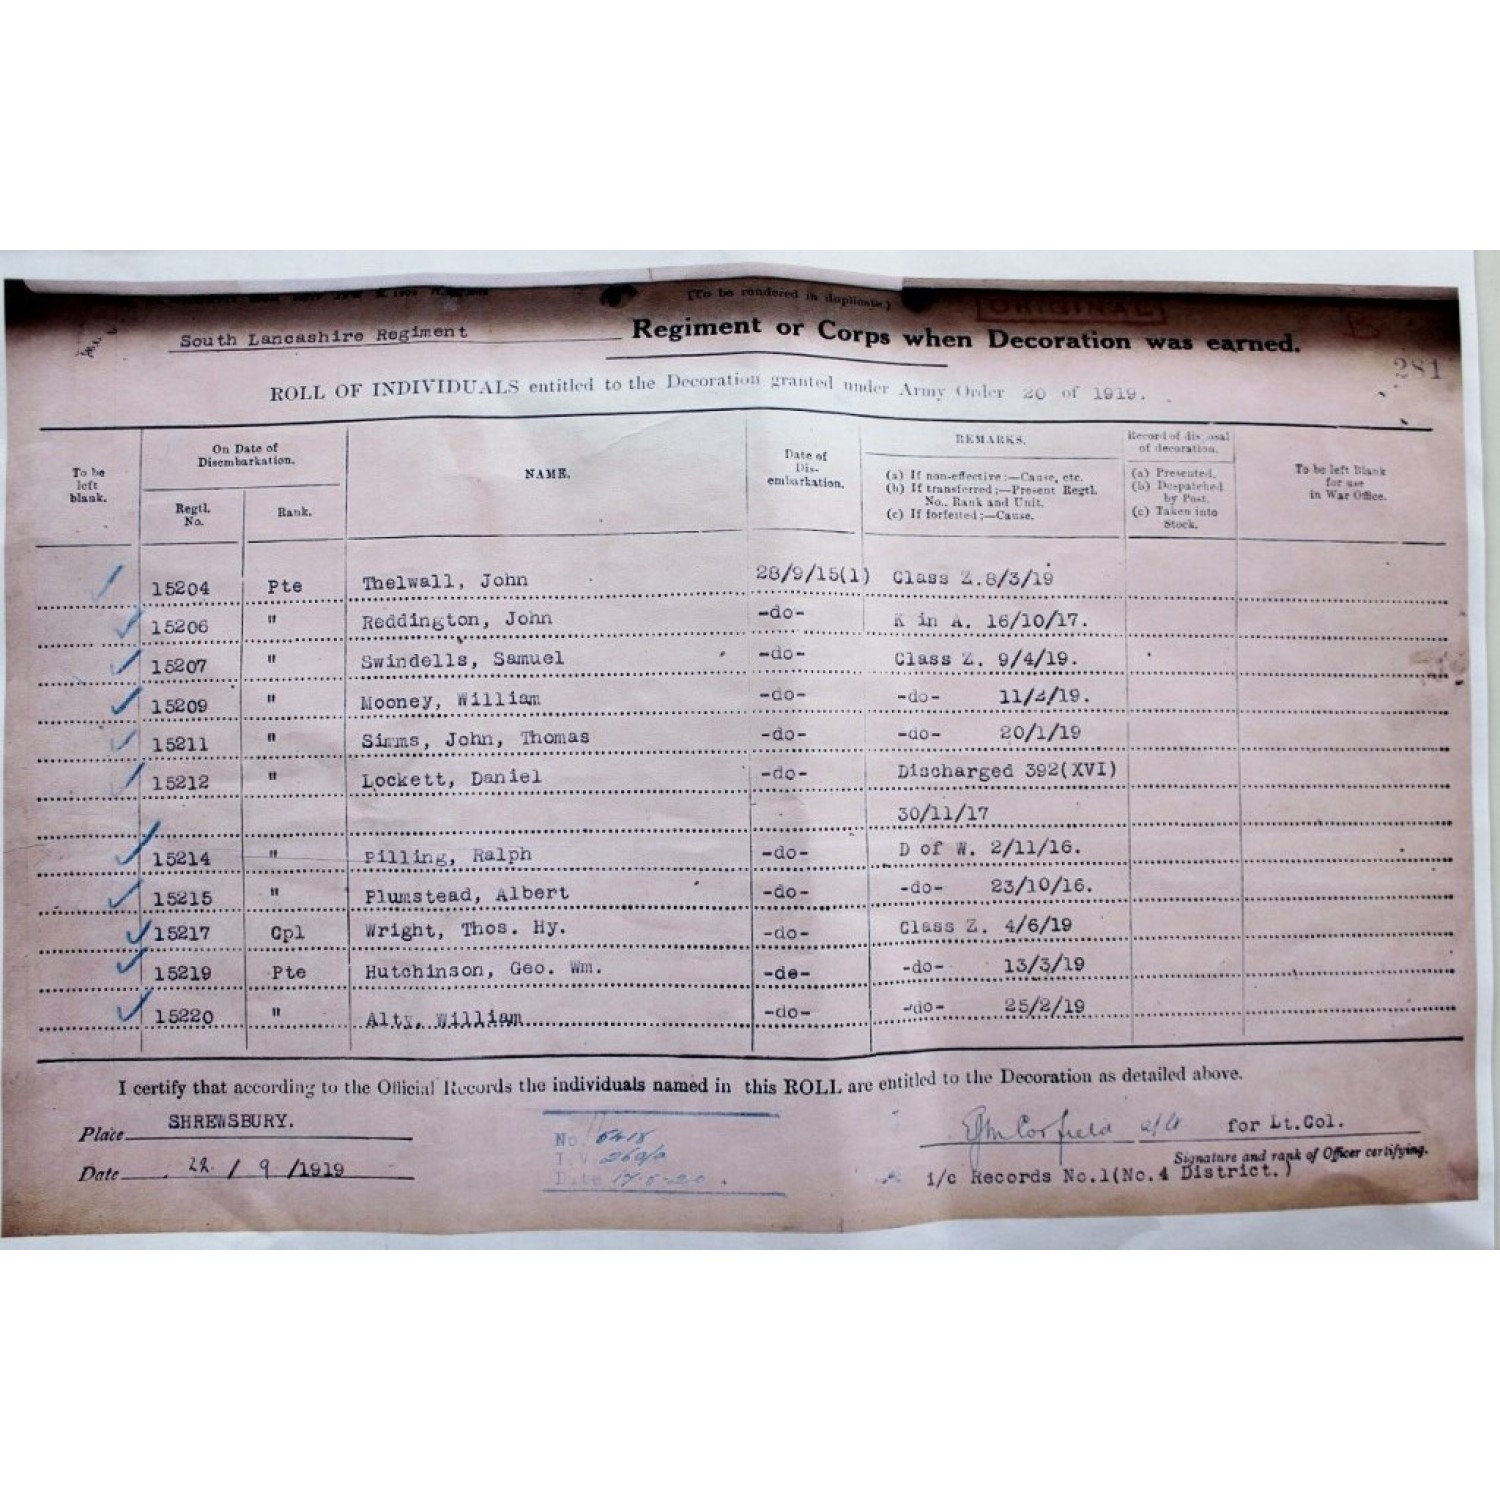 (To be rendered in duplicate)
ORIGINAL
South Lancashire Regiment Regiment or Corps when Decoration was earned.
281
ROLL OF INDIVIDUALS entitled to the Decoration granted under Army Order 20 of 1919.
To be left blank.
On Date of Disembarkation.
Regtl. No.
Rank.
NAME.
Date of Dis-embarkation.
REMARKS.
(a) If non-effective:—Cause, etc.
(b) If transferred:—Present Regtl. No., Rank and Unit.
(c) If forfeited:—Cause.
Record of disposal of decoration.
(a) Presented.
(b) Despatched by Post.
(c) Taken into Stock.
To be left Blank for use in War Office.
15204 Pte Thelwall, John 28/9/15(1) Class Z.8/3/19
15206 " Reddington, John -do- K in A. 16/10/17.
15207 " Swindells, Samuel -do- Class Z. 9/4/19.
15209 " Mooney, William -do- -do- 11/2/19.
15211 " Simms, John, Thomas -do- -do- 20/1/19
15212 " Lockett, Daniel -do- Discharged 392(XVI)
30/11/17
15214 " Pilling, Ralph -do- D of W. 2/11/16.
15215 " Plumstead, Albert -do- -do- 23/10/16.
15217 Cpl Wright, Thos. Hy. -do- Class Z. 4/6/19
15219 Pte Hutchinson, Geo. Wm. -de- -do- 13/3/19
15220 " Alty, William -do- -do- 25/2/19
I certify that according to the Official Records the individuals named in this ROLL are entitled to the Decoration as detailed above.
Place SHREWSBURY.
Date 22 / 9 /1919
No.
Date 17.5.20.
Corfield for Lt.Col.
Signature and rank of Officer certifying.
i/c Records No.1(No.4 District.)